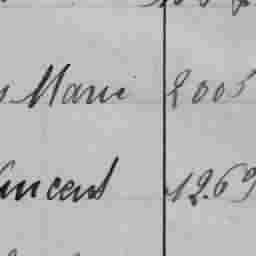 Marie 2005
Vincent 1269